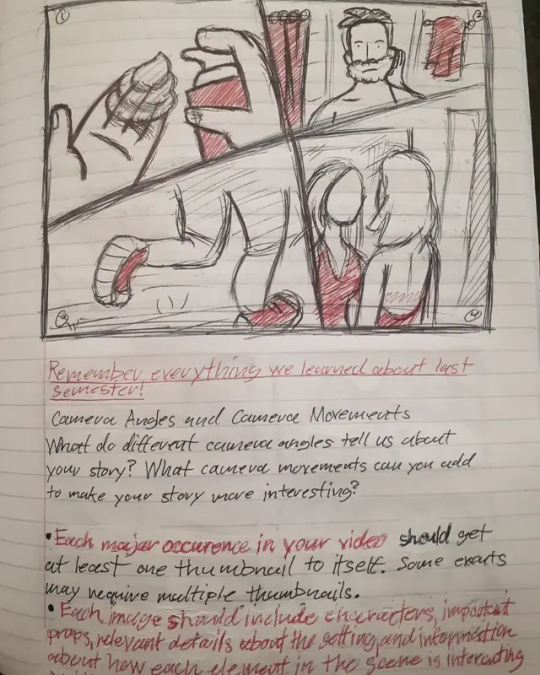 1
2
3
4
Remember everything we learned about last
semester!
Camera Angles and Camera Movements
What do different camera angles tell us about
your story? What camera movements can you add
to make your story more interesting?
• Each major occurence in your video should get
at least one thumbnail to itself. Some events
may require multiple thumbnails.
• Each image should include characters, important
props, relevant details about the setting, and information
about how each element in the scene is interacting